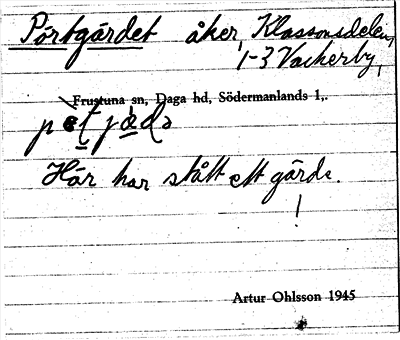 Pörtgärdet åker, Klassonsdelen,
1-3 Vackerby,
Frustuna sn, Daga hd, Södermanlands l,.
Här har stått ett gärde.
Artur Ohlsson 1945